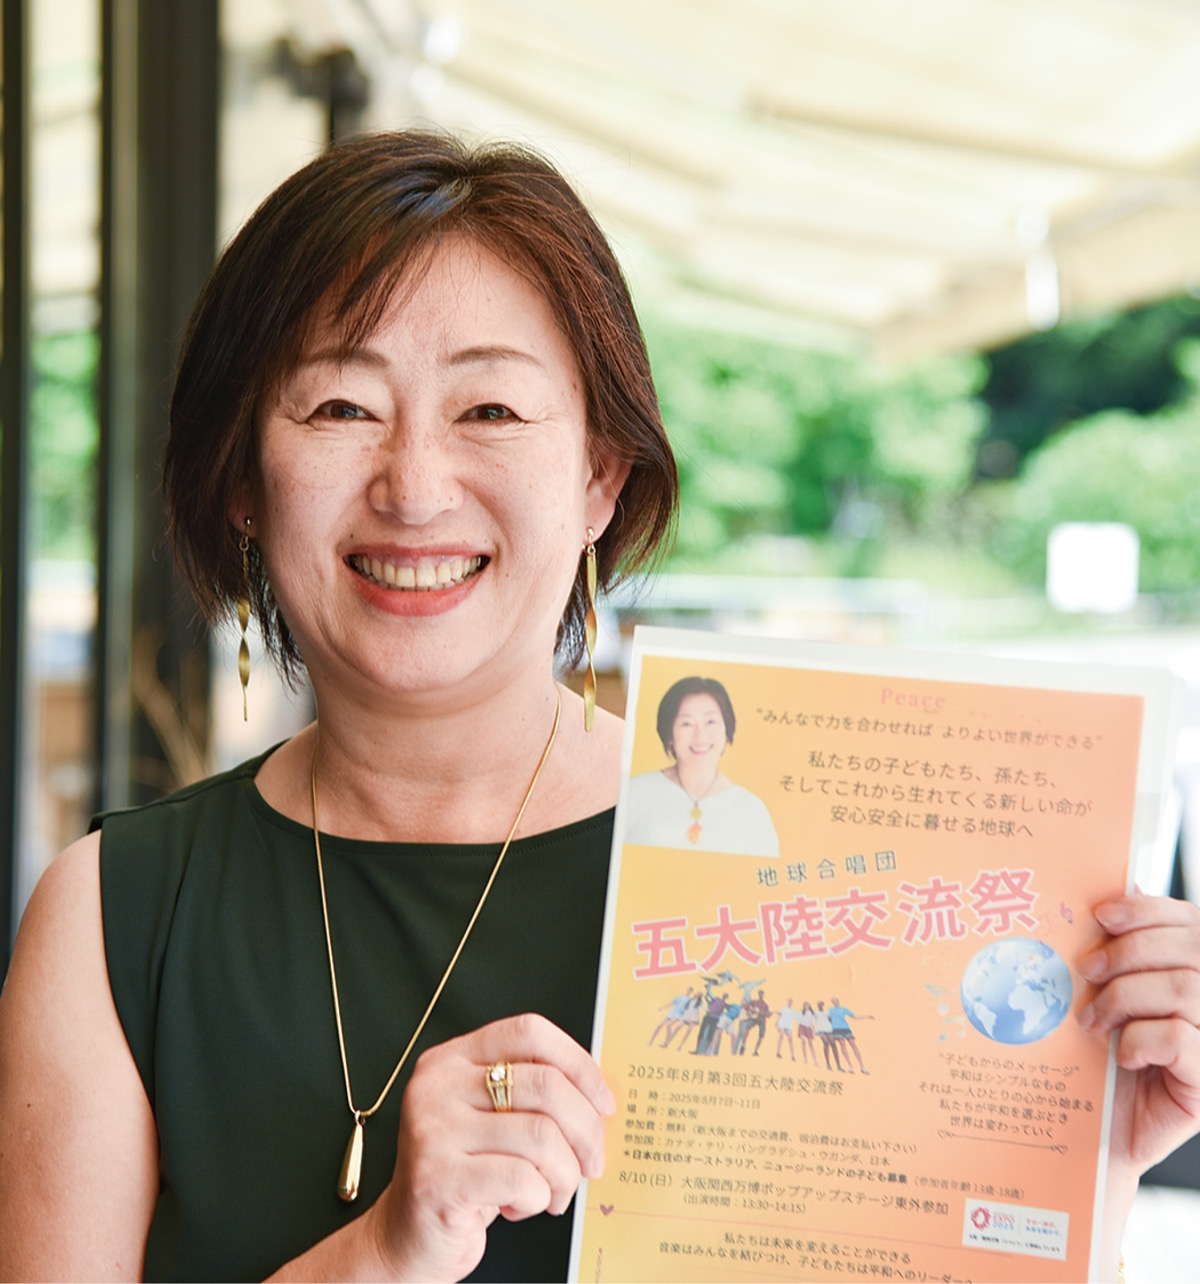 Peace
“みんなで力を合わせれば よりよい世界ができる”
私たちの子どもたち、孫たち、
そしてこれから生れてくる新しい命が
安心安全に暮せる地球へ
地球合唱団
五大陸交流祭
“子どもからのメッセージ”
平和はシンプルなもの
それは一人ひとりの心から始まる
私たちが平和を選ぶとき
世界は変わっていく
2025年8月第3回五大陸交流祭
日　時：2025年8月7日~11日
場　所：新大阪
参加費：無料（新大阪までの交通費、宿泊費はお支払い下さい）
参加国：カナダ・チリ・バングラデシュ・ウガンダ、日本
＊日本在住のオーストラリア、ニュージーランドの子ども募集（参加者年齢 13歳-18歳）
8/10 (日) 大阪関西万博ポップアップステージ東外参加
（出演時間：13:30~14:15）
EXPO
2025
私たちは未来を変えることができる
音楽はみんなを結びつけ、子どもたちは平和へのリーダーへ